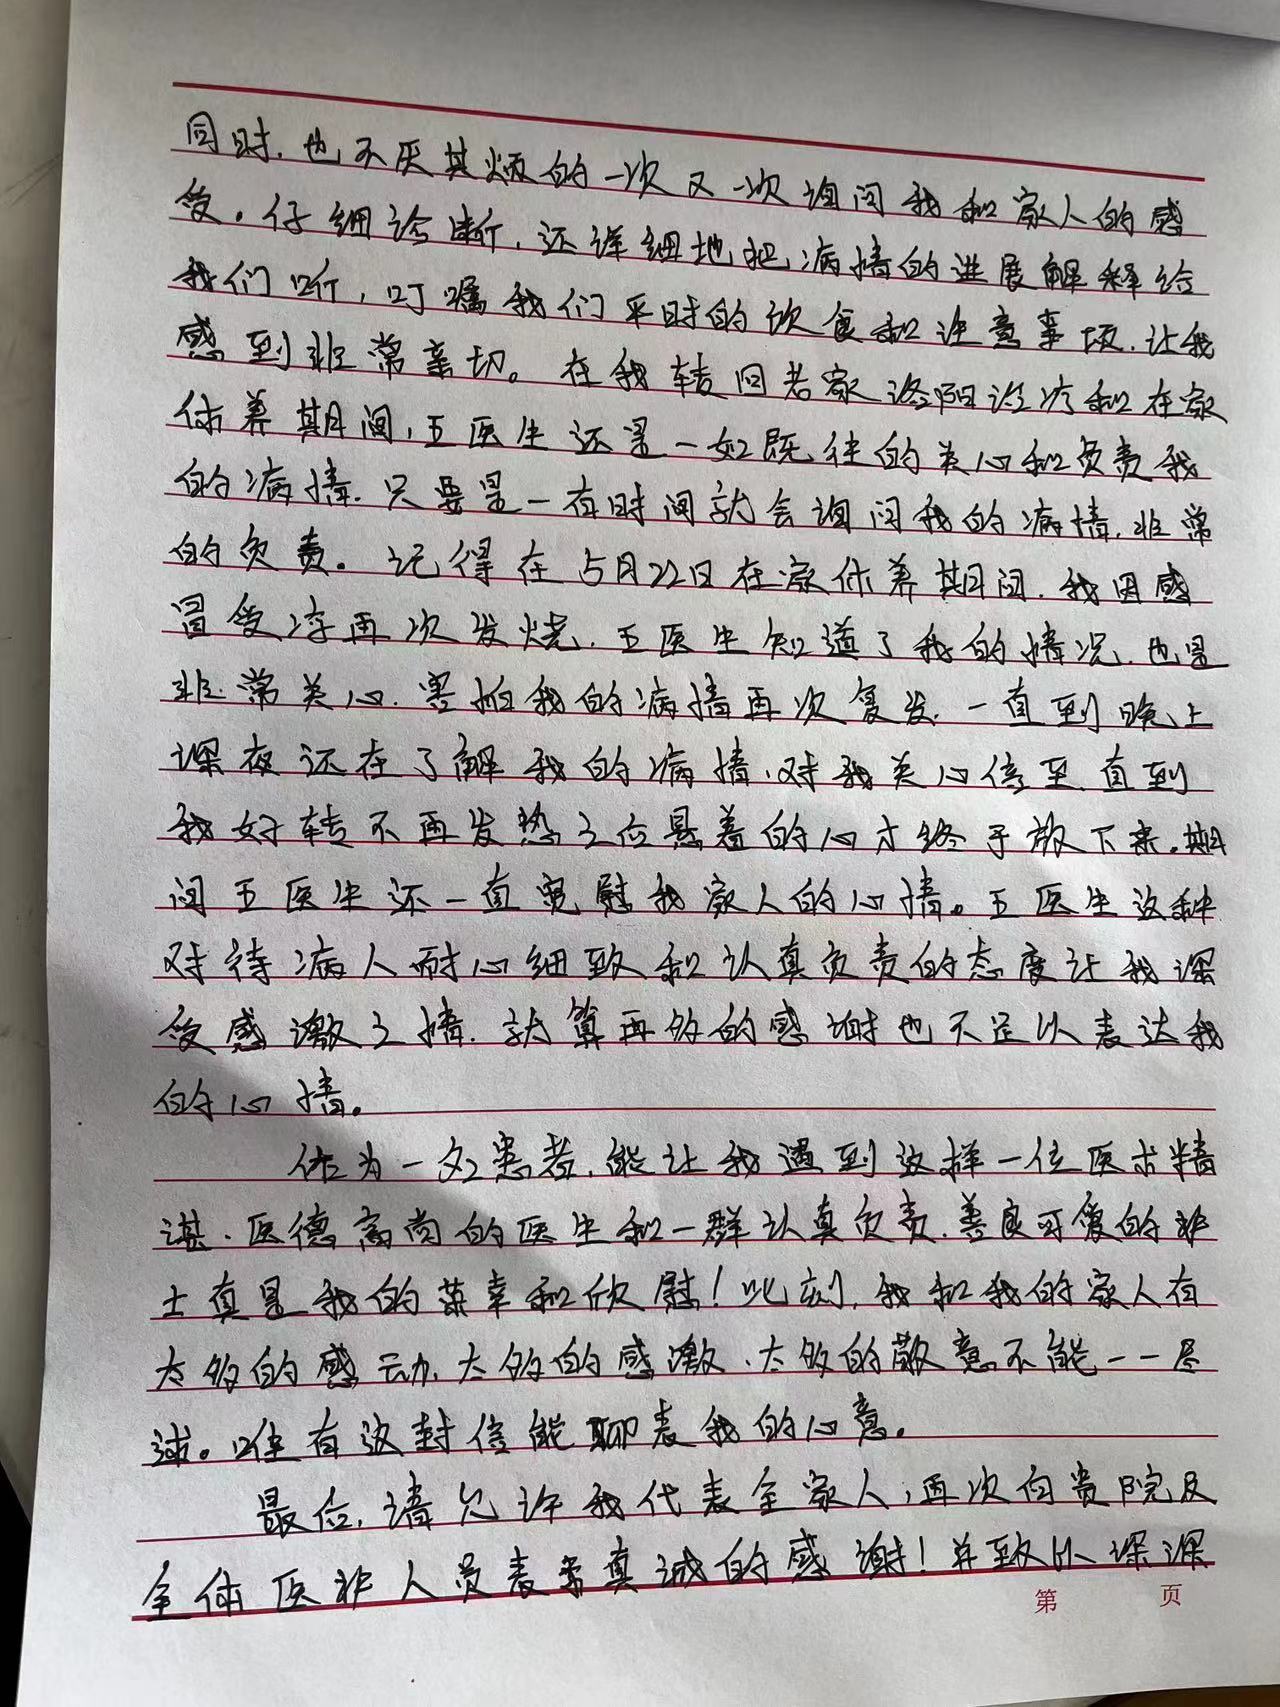 同时,也不厌其烦的一次又一次询问我和家人的感
受。仔细诊断,还详细地把病情的进展解释给
我们听,叮嘱我们平时的饮食和注意事项,让我
感到非常亲切。在我转回老家洛阳治疗和在家
休养期间,王医生还是一如既往的关心和负责我
的病情,只要是一有时间就会询问我的病情,非常
的负责。记得在5月22日在家休养期间,我因感
冒受凉再次发烧,王医生知道了我的情况,也是
非常关心,害怕我的病情再次复发,一直到晚上
深夜还在了解我的病情,对我关心倍至,直到
我好转不再发热之后悬着的心才终于放下来。期
间王医生还一直宽慰我家人的心情。王医生这种
对待病人耐心细致和认真负责的态度让我深
受感激之情,就算再多的感谢也不足以表达我
的心情。
作为一名患者,能让我遇到这样一位医术精
湛、医德高尚的医生和一群认真负责、善良可爱的护
士真是我的荣幸和欣慰!此刻,我和我的家人有
太多的感动、太多的感激、太多的敬意不能一一尽
述。唯有这封信能聊表我的心意。
最后,请允许我代表全家人,再次向贵院及
全体医护人员表示真诚的感谢!并致以深深
第 页